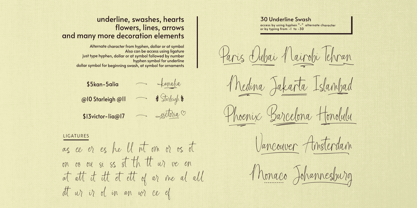 underline, swashes, hearts
flowers, lines, arrows
and many more decoration elements
Alternate character from hyphen, dollar or at symbol
Also can be access using ligature
just type hyphen, dollar or at symbol followed by number
hyphen symbol for underline
dollar symbol for beginning swash, at symbol for ornaments
$5kan-5alia
@10 Starleigh @11
$13victor-lia@17
kanalia
Starleigh
victoria
LIGATURES
as ce er es he ll nt om or os ot
on oo ou su ss st th tt ur ve on
at att it itt et ett of ar me al all
30 Underline Swash
access by using hyphen "-" alternate character
or by typing from -1 to -30
Paris Dubai Nairobi Tehran
Medina Jakarta Islambad
Phoenix Barcelona Honolulu
Vancouver Amsterdam
Monaco Johannesburg